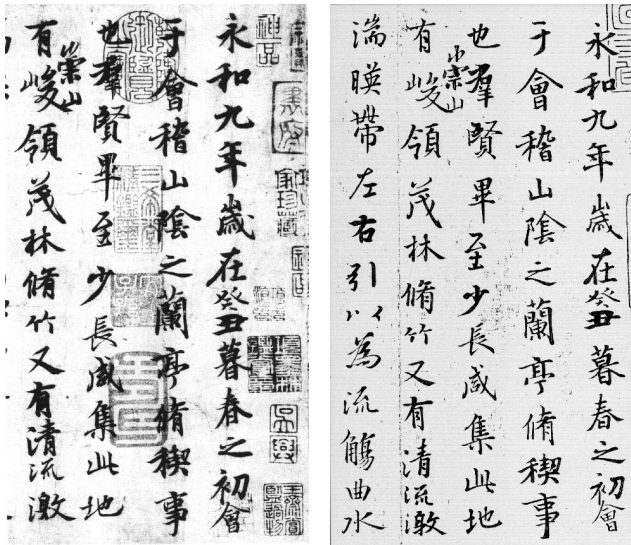 神品
永和九年歲在癸丑暮春之初會
于會稽山陰之蘭亭脩稧事
也羣賢畢至少長咸集此地
有崇山峻領茂林脩竹又有清流激
永和九年歲在癸丑暮春之初會
于會稽山陰之蘭亭脩稧事
也羣賢畢至少長咸集此地
有崇山峻領茂林脩竹又有清流激
湍暎帶左右引以為流觴曲水